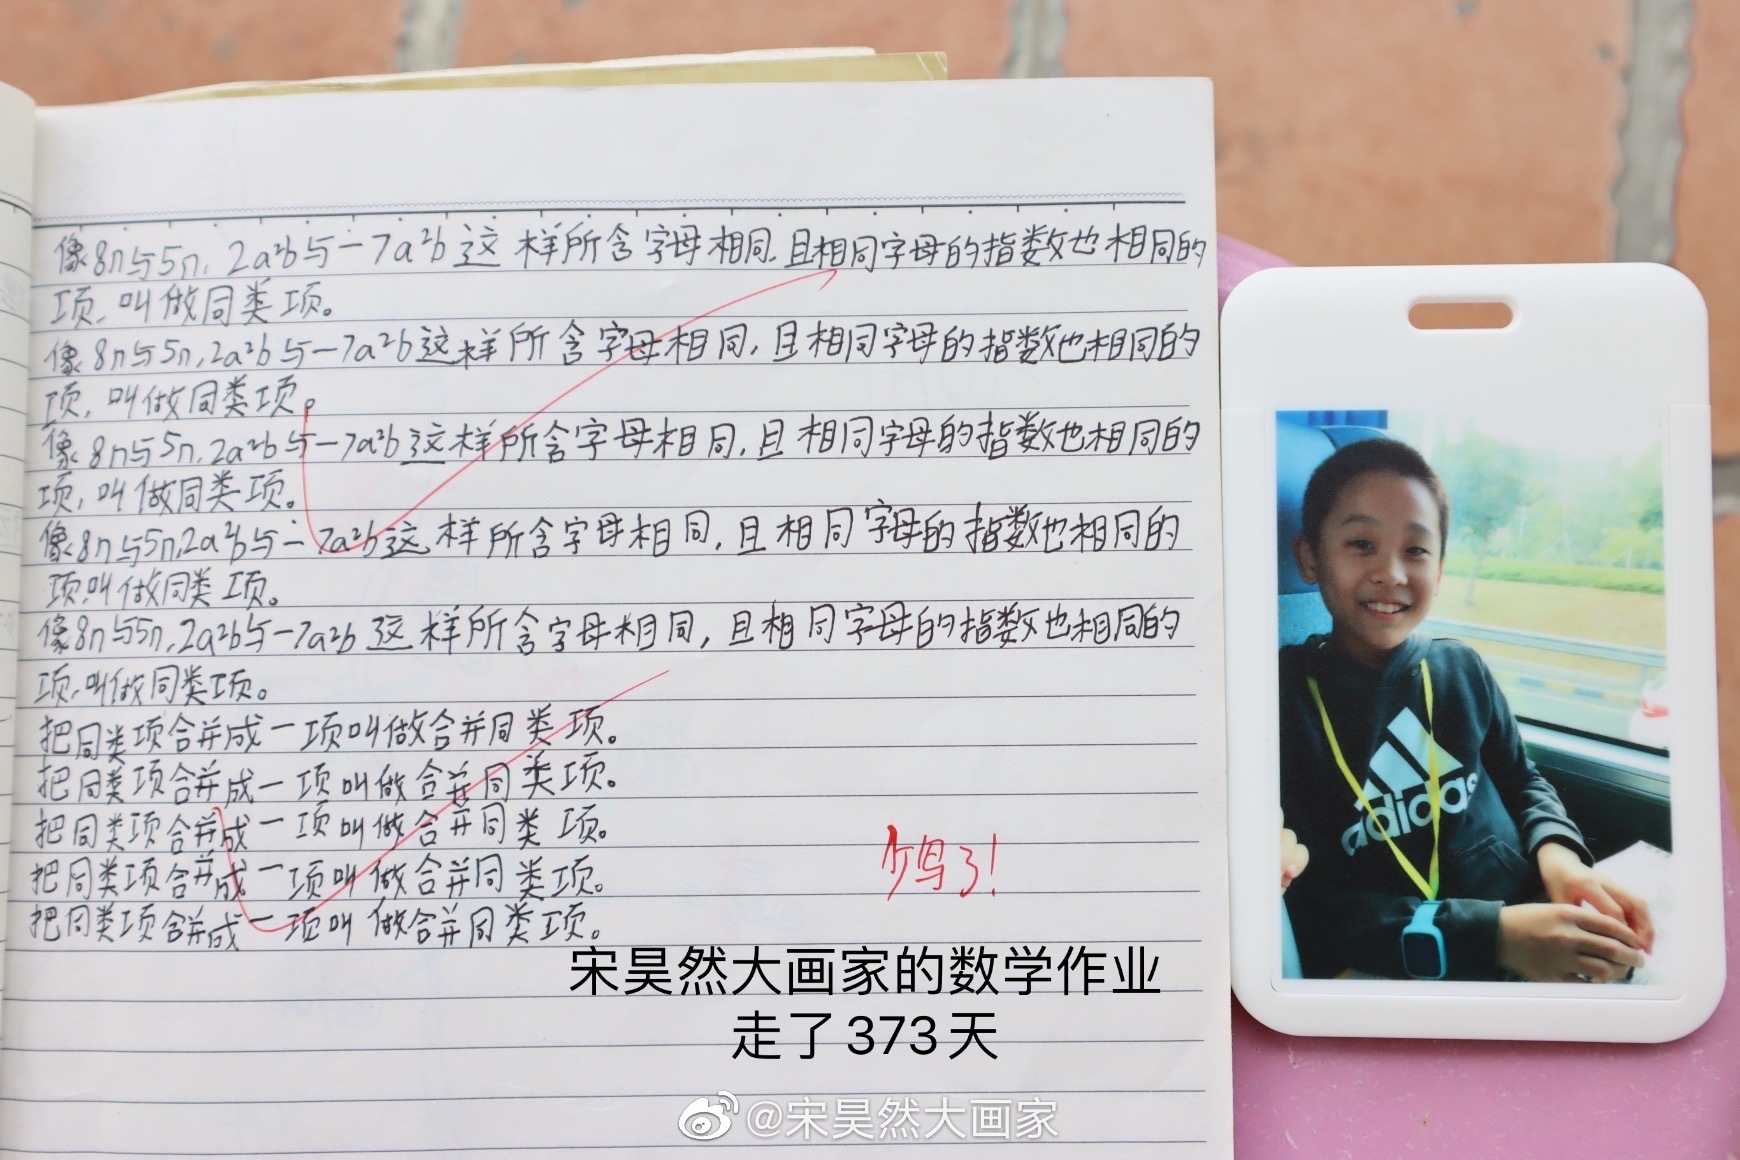 像8n与5n,2a²b与-7a²b这样所含字母相同.且相同字母的指数也相同的
项,叫做同类项。
像8n与5n,2a²b与-7a²b这样所含字母相同,且相同字母的指数也相同的
项,叫做同类项。
像8n与5n,2a²b与-7a²b这样所含字母相同,且相同字母的指数也相同的
项,叫做同类项。
像8n与5n,2a²b与-7a²b这样所含字母相同,且相同字母的指数也相同的
项,叫做同类项。
像8n与5n,2a²b与-7a²b这样所含字母相同,且相同字母的指数也相同的
项,叫做同类项。
把同类项合并成一项叫做合并同类项。
把同类项合并成一项叫做合并同类项。
把同类项合并成一项叫做合并同类项。
把同类项合并成一项叫做合并同类项。
把同类项合并成一项叫做合并同类项。
了!
adidas
宋昊然大画家的数学作业
走了373天
@宋昊然大画家